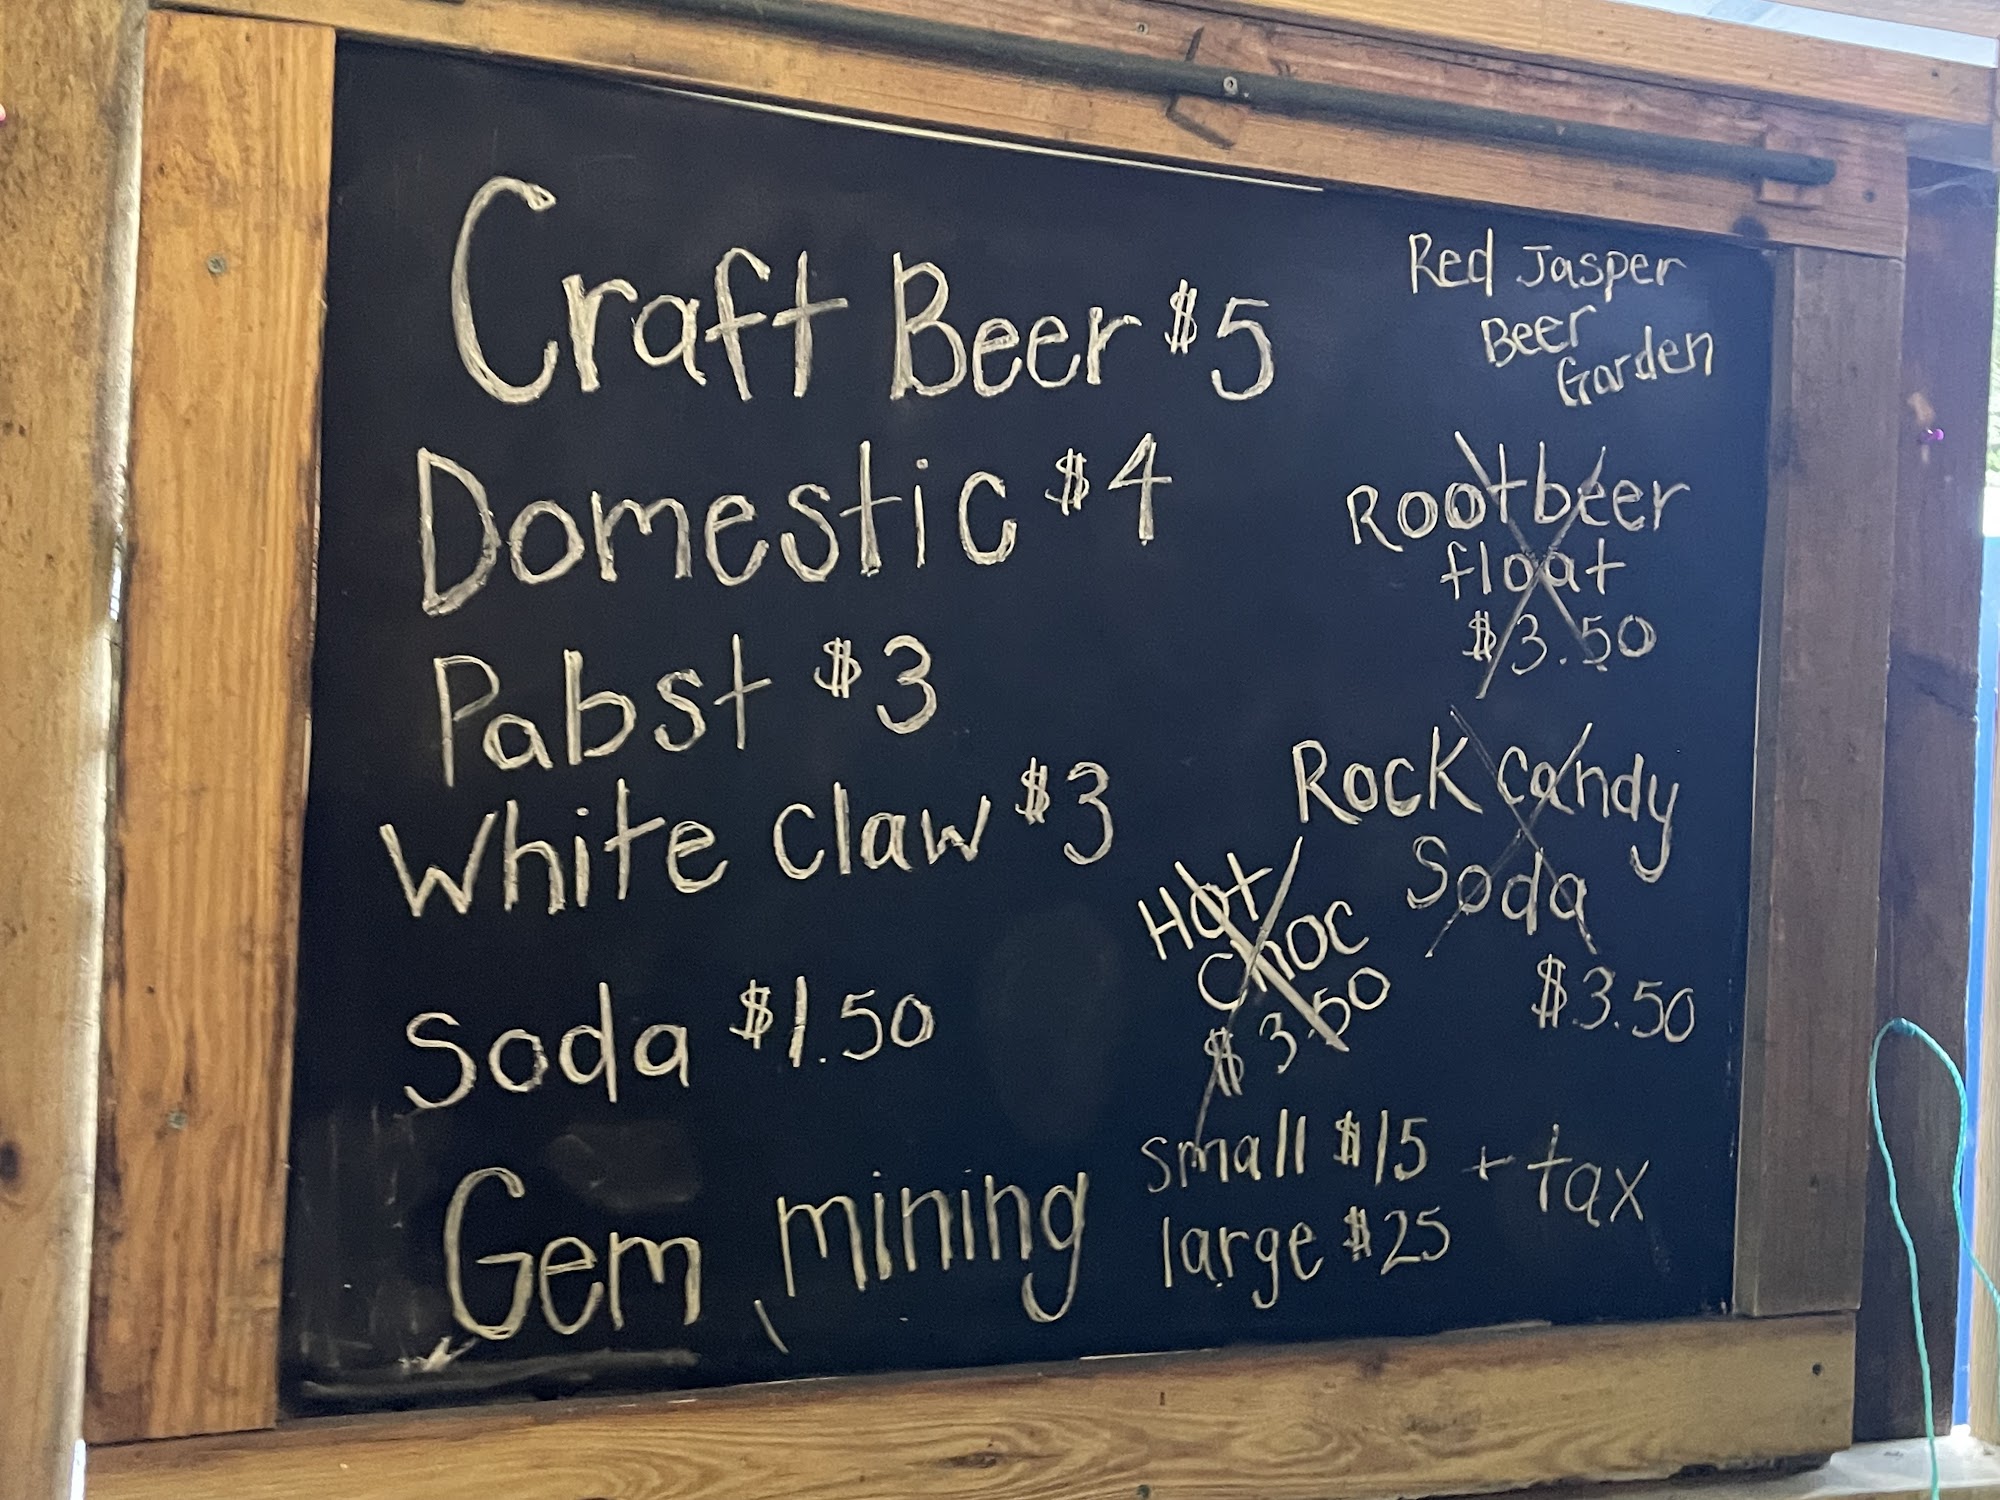 Craft Beer $5
Domestic $4
Pabst $3
White claw $3
Soda $1.50
Gem mining
small $15 + tax
large $25
Red Jasper
Beer
Garden
Rootbeer
float
$3.50
Rock candy
Soda
$3.50
Hot
Choc
$3.50